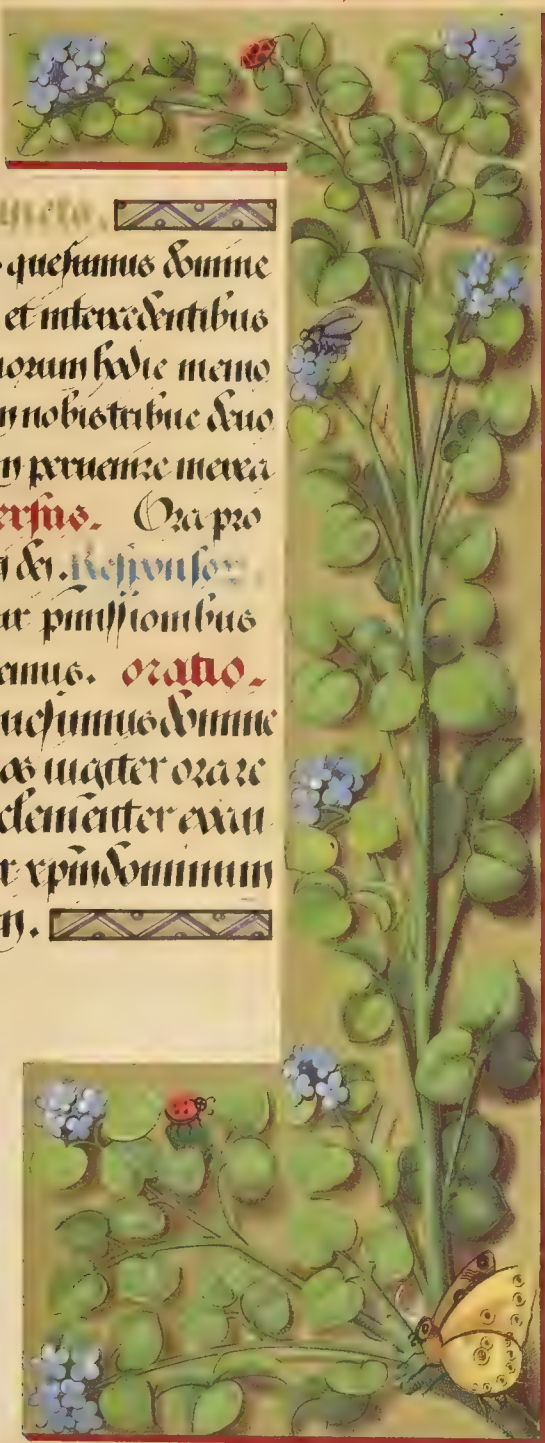 quesumus domine
et intercedentibus
norum hodie memo
nobis tribue deuo
peruenire merea
ersus. Ora pro
dei. Responsor
ur pmissionibus
emus. oratio.
uesumus domine
os iugiter orare
clementer exau
r xpm dominum